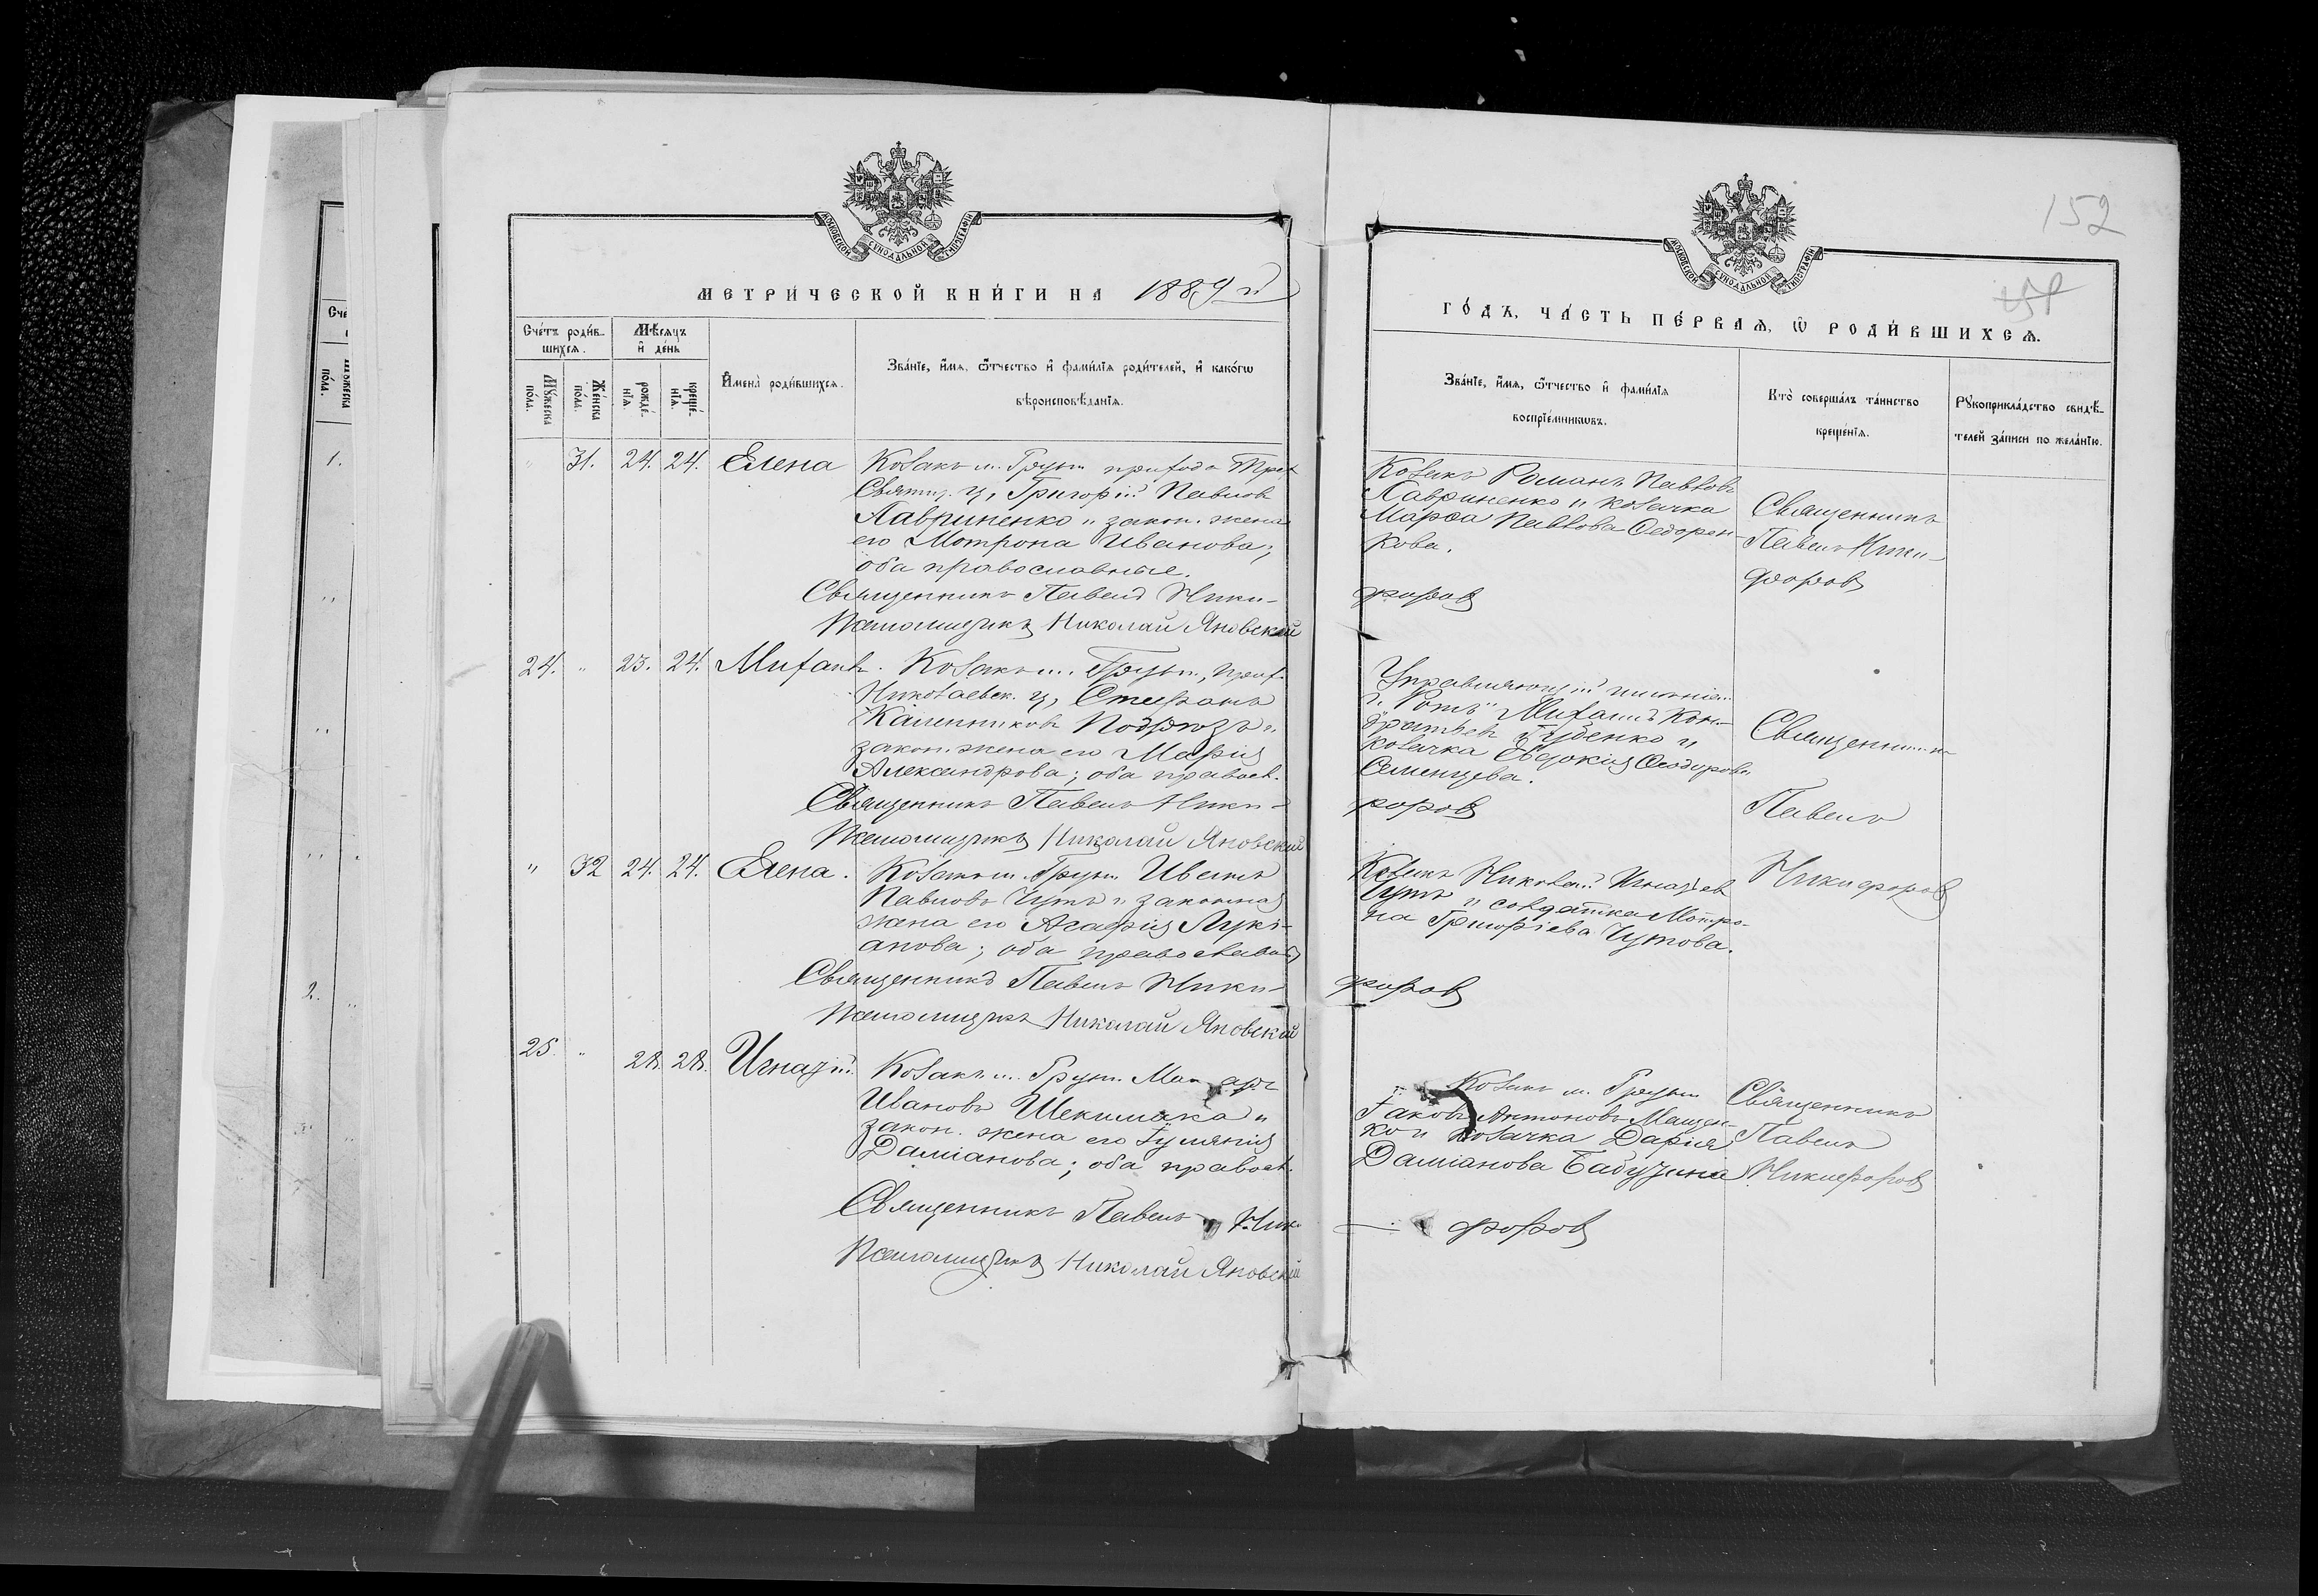 152
МОСКОВСКОЙ СѴНОДАЛЬНОЙ ТИПОГРАФІИ
МОСКОВСКОЙ СѴНОДАЛЬНОЙ ТИПОГРАФІИ
МЕТРИ́ЧЕСКОЙ КНИ́ГИ НА 1889 г
ГО́ДЪ, ЧА́СТЬ ПЕ́РВАѦ, Ѡ҆ РОДИ́ВШИХСѦ.
Сче́тъ роди́в-
шихсѧ.
Мѣ́сѧцъ
и҆ де́нь
Мꙋ́жеска
по́ла.
Же́нска
по́ла.
рожде́-
нїѧ.
креще́-
нїѧ.
И҆мена̀ роди́вшихсѧ.
Зва́нїе, и҆́мѧ, ѻ҆́тчество и҆ фами́лїѧ роди́телей, и҆ како́гѡ
вѣроисповѣ́данїѧ.
Зва́нїе, и҆́мѧ, ѻ҆́тчество и҆ фами́лїѧ
воспрїе́мникѡвъ.
Кто̀ соверша́лъ та́инство
креще́нїѧ.
Рꙋкоприкла́дство свидѣ́-
телей за́писи по жела́нїю.
" 31. 24. 24. Елена
Козакъ м. Грун. прихода Трех
Святит. ц, Григорій Павлов
Лавриненко и закон. жена
его Мотрона Иванова;
оба православные.
Священникъ Павелъ Ники-
форов
Псаломщикъ Николай Яновскій
Козакъ Романъ Павловъ
Лавриненко и козачка
Марѳа Павлова Ѳедорен-
кова.
Священникъ
Павелъ Ники-
форовъ
24. " 23. 24. Михаилъ.
Козакъ м. Грун., прих.
Николаевск. ц, Стефанъ
Каленниковъ и
закон. жена его Марія
Александрова; оба правосл.
Священникъ Павелъ Ники-
форов
Псаломщикъ Николай Яновскій
Управляющій имѣнія
г. "Ротъ" Михаилъ Кон-
дратьев Губенко и
козачка Евдокія Ѳеодорова
Семенцева.
Священникъ
Павелъ
Никифоровъ
" 32 24. 24. Елена.
Козакъ м. Грун. Иванъ
Павловъ Чутъ и законная
жена его Агафія Лукі-
анова; оба православн
Священникъ Павелъ Ники-
форов
Псаломщикъ Николай Яновскій
Козакъ Николай Игнатіев
Чутъ и солдатка Мотро-
на Григоріева Чутова.
25. " 28. 28. Игнатій.
Козакъ м. Грун.
Ивановъ Шекимака и
закон. жена его Іуліанія
Даміанова; оба правосл.
Священникъ Павелъ Ник
форовъ
Псаломщикъ Николай Яновскій
Козакъ м. Грун
Іаковъ Антоновъ Мащен-
ко и козачка Дарія
Даміанова Бабузина
Священникъ
Павелъ
Никифоровъ